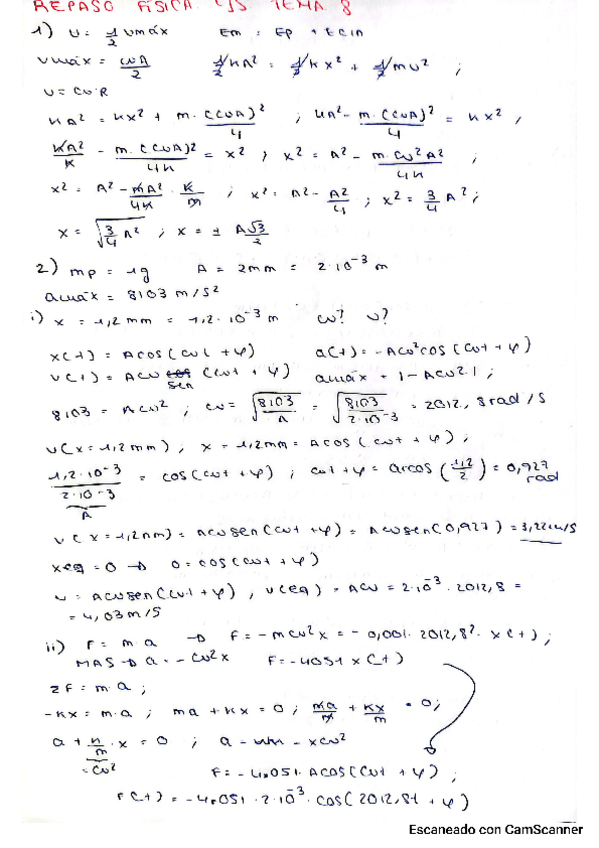 REPASO FÍSICA C/S TEMA 8
1) v = 1/2 vmáx Em = Ep + Ecin
vmáx = ωA/2 1/2 kA² = 1/2 kx² + 1/2 mv² ;
v = ω·R
kA² = kx² + m·(ωA)²/4 ; kA² - m·(ωA)²/4 = kx² ;
kA²/k - m·(ωA)²/4k = x² ; x² = A² - m·ω²A²/4k ;
x² = A² - mA²/4k · k/m ; x² = A² - A²/4 ; x² = 3/4 A² ;
x = √(3/4 A²) ; x = ± A√3/2
2) mp = 1g A = 2mm = 2·10⁻³ m
amáx = 8103 m/s²
i) x = 1,2mm = 1,2·10⁻³ m ω? v?
x(t) = Acos(ωt + φ) a(t) = -Aω²cos(ωt + φ)
v(t) = Aω sen (ωt + φ) amáx = |-Aω²| ;
8103 = Aω² ; ω = √(8103/A) = √(8103/2·10⁻³) = 2012,8rad/s
v(x=1,2mm) ; x = 1,2mm = Acos(ωt + φ) ;
1,2·10⁻³/2·10⁻³ = cos(ωt + φ) ; ωt + φ = arcos(1,2/2) = 0,927 rad
A
v(x=1,2mm) = Aωsen(ωt + φ) = Aωsen(0,927) = 3,22m/s
xeq = 0 → 0 = cos(ωt + φ)
v = Aωsen(ωt + φ) , v(eq) = Aω = 2·10⁻³·2012,8 =
= 4,03m/s
ii) F = m·a → F = -mω²x = -0,001·2012,8²·x(t) ;
MAS → a = -ω²x F = -4051x(t)
ΣF = m·a ;
-kx = m·a ; ma + kx = 0 ; ma/m + kx/m = 0 ;
a + k/m·x = 0 ; a = -xω²
=ω²
F = -4.051·Acos(ωt + φ) ;
F(t) = -4.051·2·10⁻³·cos(2012,8t + φ)
Escaneado con CamScanner